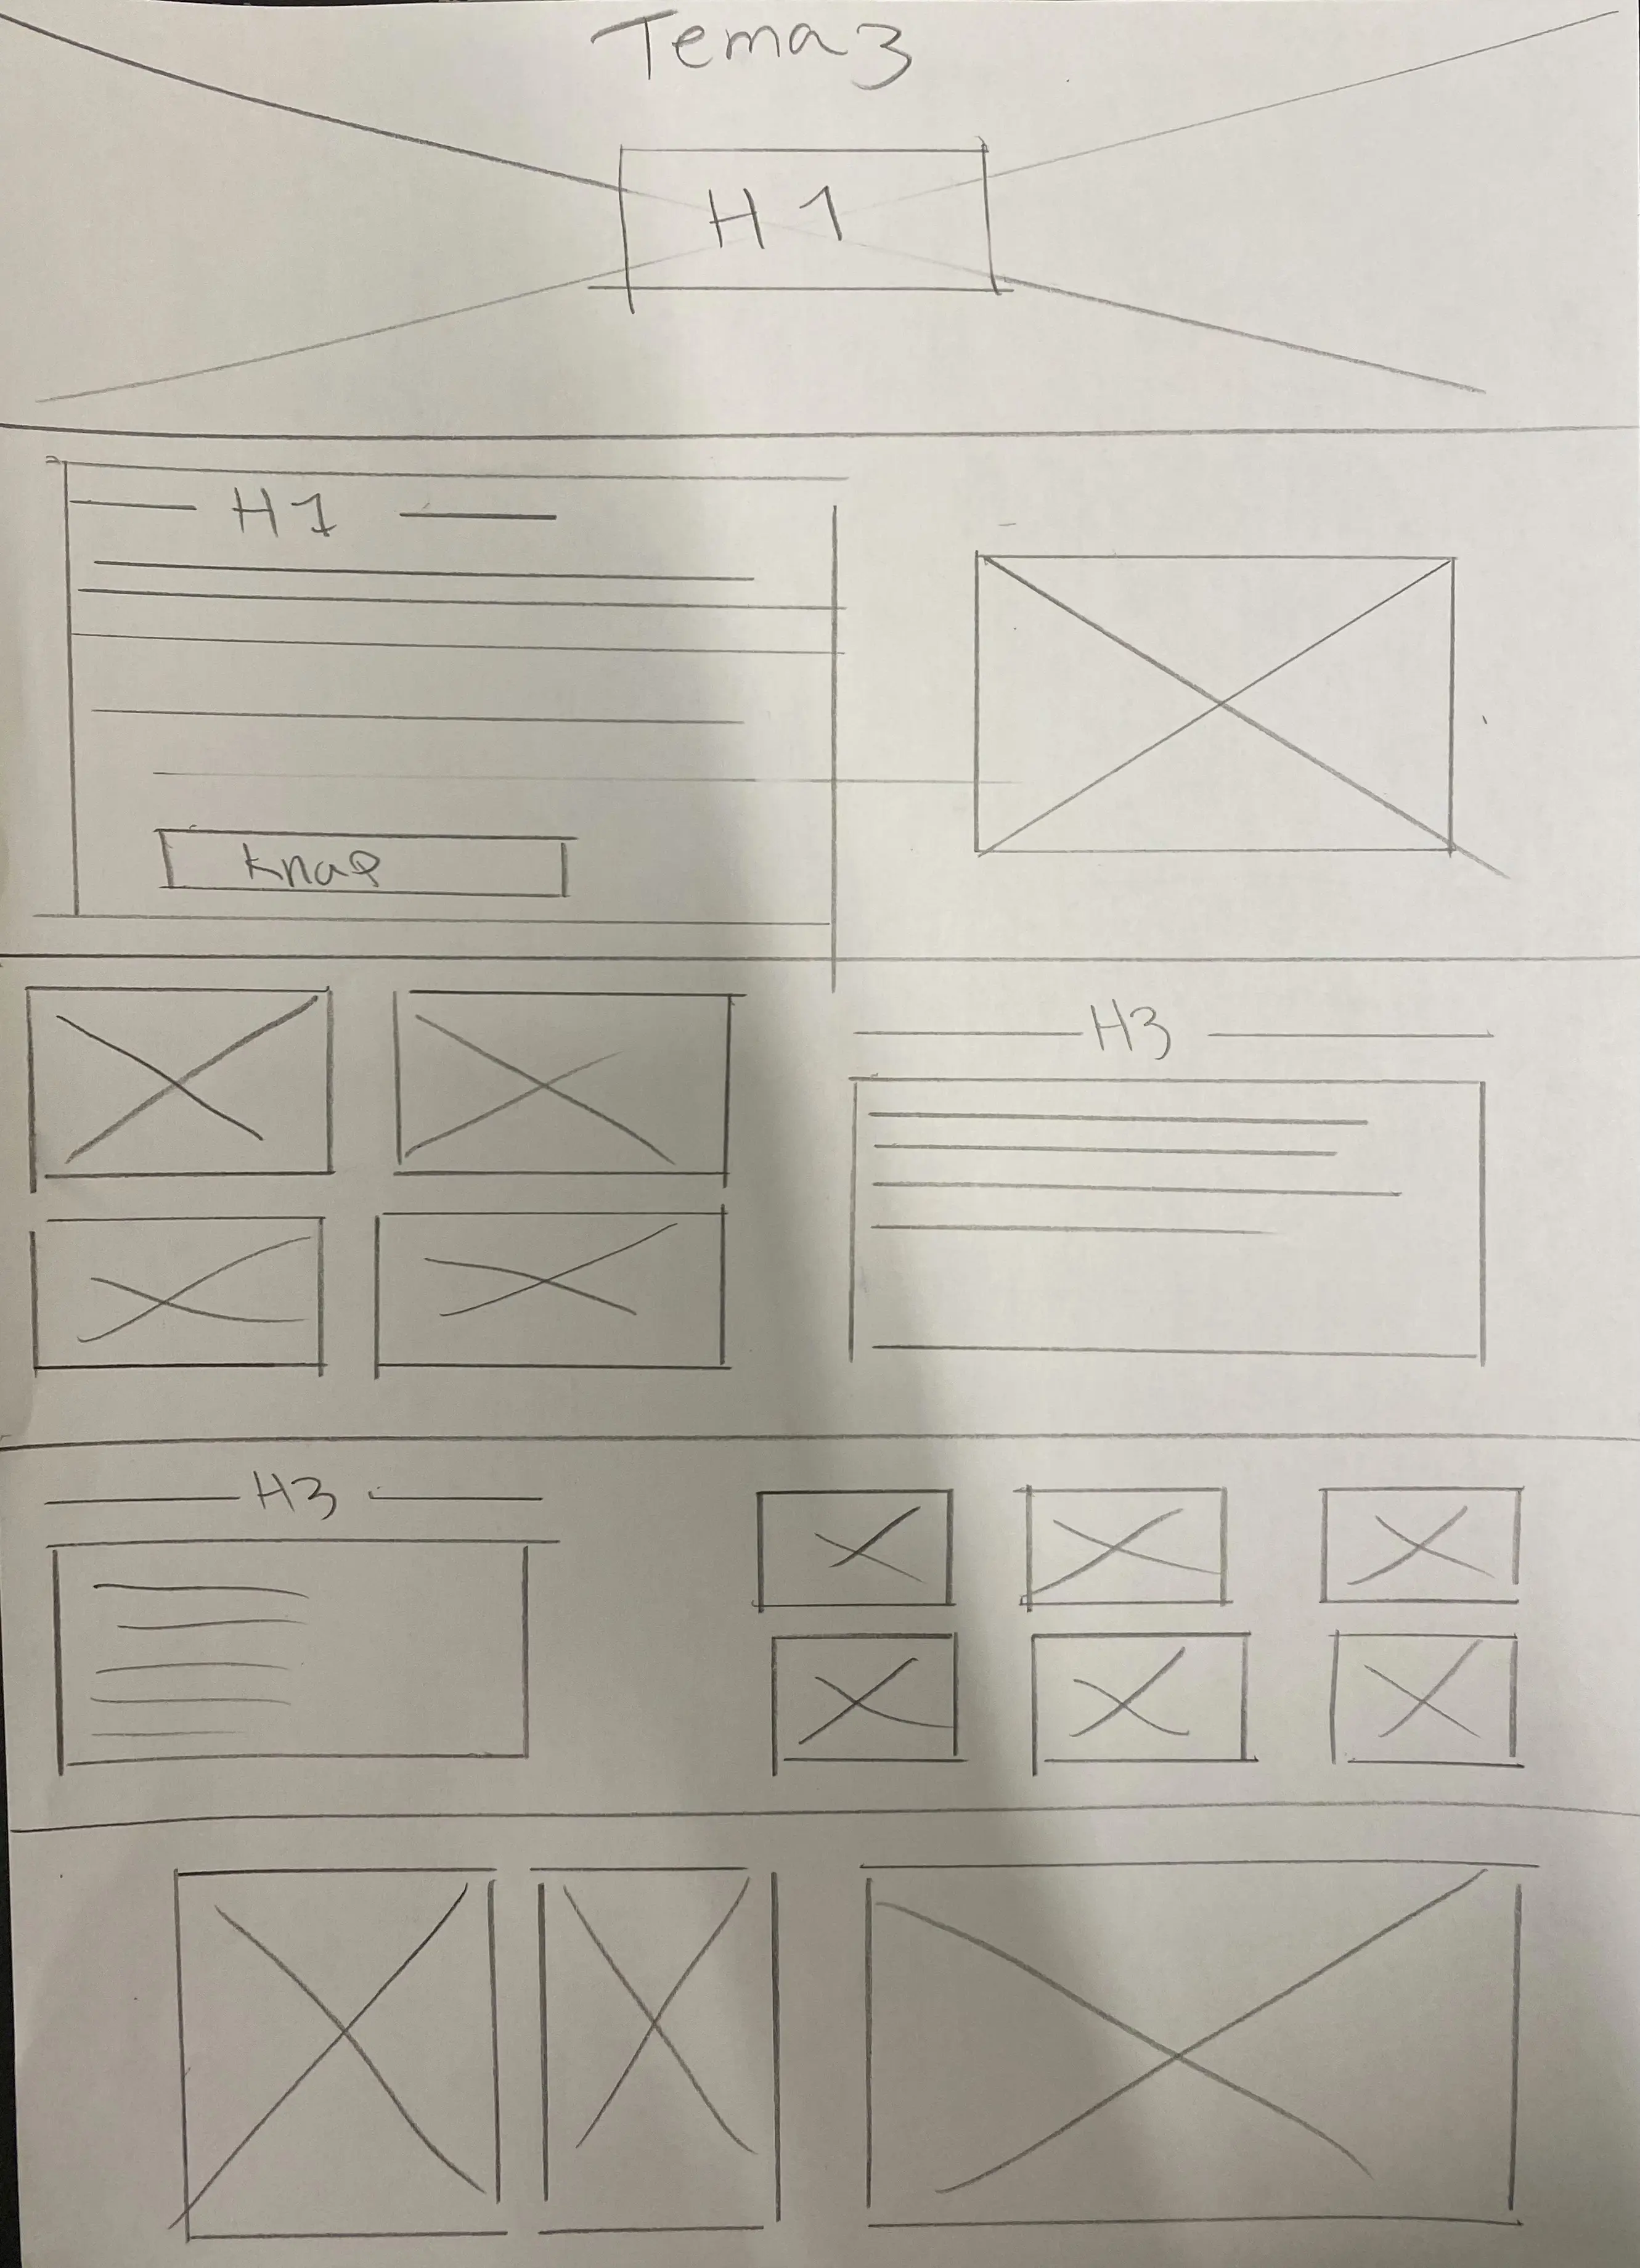 Tema 3
H1
H1
Knap
H3
H3